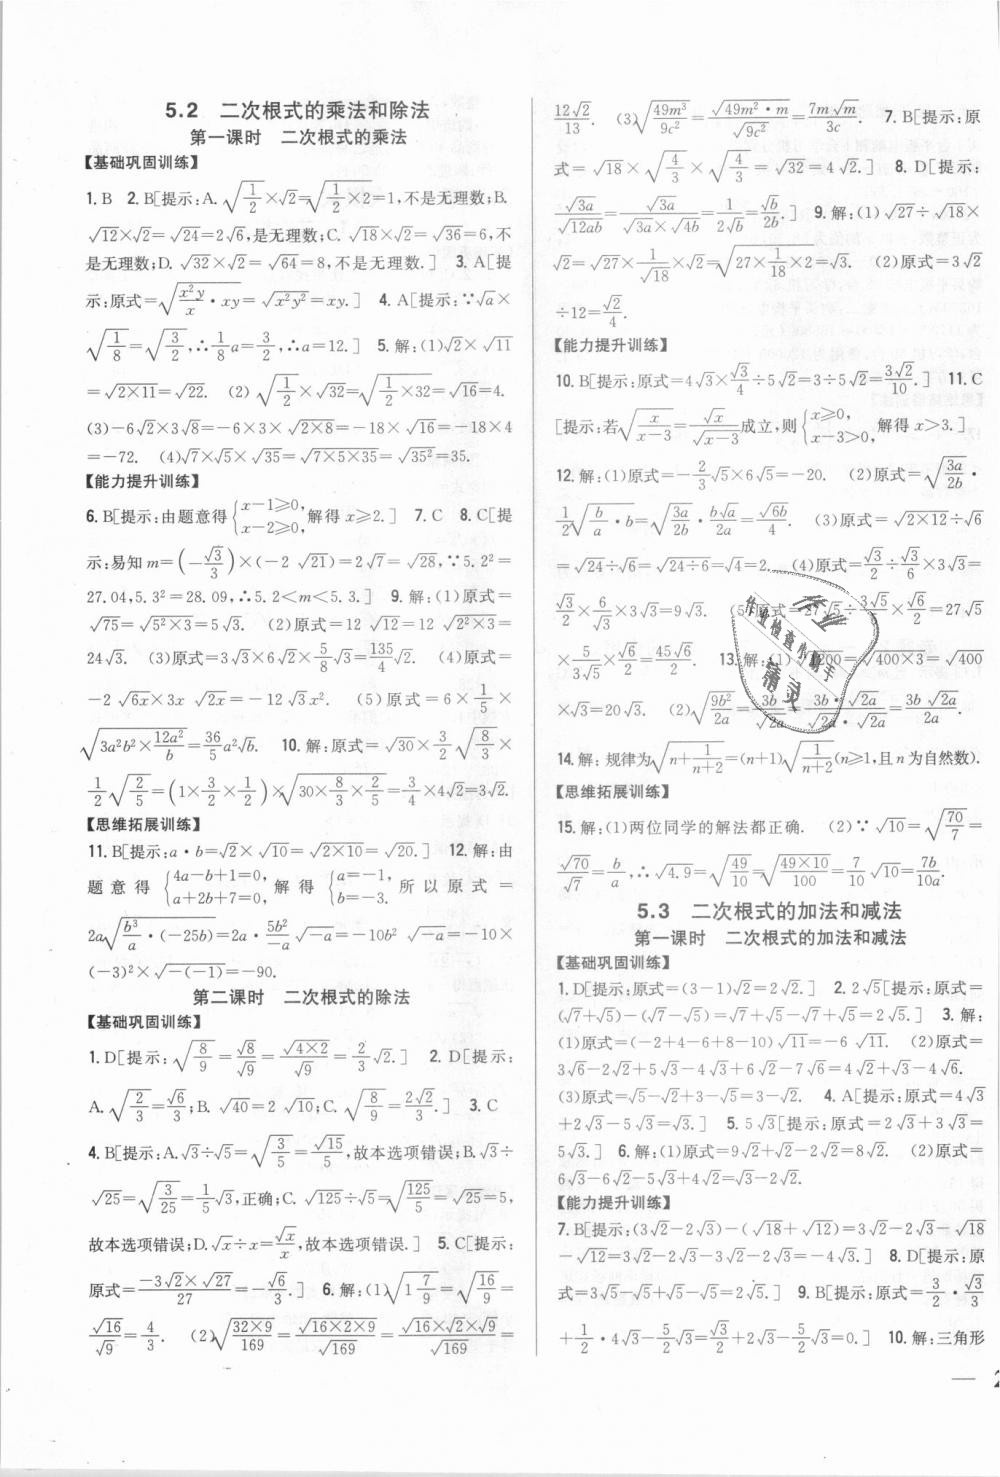 5.2 二次根式的乘法和除法
第一课时 二次根式的乘法
【基础巩固训练】
1. B 2. B[提示:A. √(1/2)×√2=√(1/2×2)=1,不是无理数;B.
√12×√2=√24=2√6,是无理数;C. √18×√2=√36=6,不
是无理数;D. √32×√2=√64=8,不是无理数.] 3. A[提
示:原式=√(x²y/x·xy)=√(x²y²)=xy.] 4. A[提示:∵√a×
√(1/8)=√(3/2),∴1/8a=3/2,∴a=12.] 5. 解:(1)√2×√11
=√(2×11)=√22. (2)√(1/2)×√32=√(1/2×32)=√16=4.
(3)-6√2×3√8=-6×3×√(2×8)=-18×√16=-18×4
=-72. (4)√7×√5×√35=√(7×5×35)=√(35²)=35.
【能力提升训练】
6. B[提示:由题意得{x-1≥0, x-2≥0,解得x≥2.] 7. C 8. C[提
示:易知m=(-√3/3)×(-2√21)=2√7=√28,∵5.2²=
27.04,5.3²=28.09,∴5.2<m<5.3.] 9. 解:(1)原式=
√75=√(5²×3)=5√3. (2)原式=12√12=12√(2²×3)=
24√3. (3)原式=3√3×6√2×5/8√3=135/4√2. (4)原式=
-2√6x×3x√2x=-12√3x². (5)原式=6×1/5×
√(3a²b²×12a²/b)=36/5a²√b. 10. 解:原式=√30×3/2√(8/3)×
1/2√(2/5)=(1×3/2×1/2)×√(30×8/3×2/5)=3/4×4√2=3√2.
【思维拓展训练】
11. B[提示:a·b=√2×√10=√(2×10)=√20.] 12. 解:由
题意得{4a-b+1=0, a+2b+7=0,解得{a=-1, b=-3.所以原式=
2a√(b³/a)·(-25b)=2a·5b²/-a√-a=-10b²√-a=-10×
(-3)²×√(-(-1))=-90.
第二课时 二次根式的除法
【基础巩固训练】
1. D[提示:√(8/9)=√8/√9=√(4×2)/√9=2/3√2.] 2. D[提示:
A. √(2/3)=√6/3;B. √40=2√10;C. √(8/9)=2√2/3.] 3. C
4. B[提示:A. √3÷√5=√(3/5)=√15/5,故本选项错误;B. √3÷
√25=√(3/25)=1/5√3,正确;C. √125÷√5=√(125/5)=√25=5,
故本选项错误;D. √x÷x=√x/x,故本选项错误.] 5. C[提示:
原式=-3√2×√27/27=-√6/3.] 6. 解:(1)√(1 7/9)=√(16/9)=
√16/√9=4/3. (2)√(32×9/169)=√(16×2×9)/√169=√16×√2×√9/√169=
12√2/13. (3)√(49m³/9c²)=√(49m²·m)/√(9c²)=7m√m/3c. 7. B[提示:原
式=√18×√(4/3)×√(4/3)=√32=4√2.] 8. D[提示:
√3a/√12ab=√3a/(√3a×√4b)=1/2√b=√b/2b.] 9. 解:(1)√27÷√18×
√2=√27×1/√18×√2=√(27×1/18×2)=√3. (2)原式=3√2
÷12=√2/4.
【能力提升训练】
10. B[提示:原式=4√3×√3/4÷5√2=3÷5√2=3√2/10.] 11. C
[提示:若√(x/(x-3))=√x/√(x-3)成立,则{x≥0, x-3>0,解得x>3.]
12. 解:(1)原式=-2/3√5×6√5=-20. (2)原式=√(3a/2b)·
1/2√(b/a)·b=√(3a/2b)·b√a/2a=√6b/4. (3)原式=√(2×12)÷√6
=√24÷√6=√(24÷6)=√4=2. (4)原式=√3/2÷√3/6×3√3=
√3/2×6/√3×3√3=9√3. (5)原式=27√5÷3√5/5×√6/2=27√5
×5/3√5×√6/2=45√6/2. 13. 解:(1)√1200=√(400×3)=√400
×√3=20√3. (2)√(9b²/2a)=3b/√2a=3b·√2a/√2a·√2a=3b√2a/2a.
14. 解:规律为√(n+1/(n+2))=(n+1)√(1/(n+2))(n≥1,且n为自然数).
【思维拓展训练】
15. 解:(1)两位同学的解法都正确. (2)∵√10=√(70/7)=
√70/√7=b/a,∴√4.9=√(49/10)=√(49×10/100)=7/10√10=7b/10a.
5.3 二次根式的加法和减法
第一课时 二次根式的加法和减法
【基础巩固训练】
1. D[提示:原式=(3-1)√2=2√2.] 2. 2√5[提示:原式=
(√7+√5)-(√7-√5)=√7+√5-√7+√5=2√5.] 3. 解:
(1)原式=(-2+4-6+8-10)√11=-6√11. (2)原式=
3√6-2√2+5√3-4√3+6√2-7√6=4√2+√3-4√6.
(3)原式=√5-√2+3-√5=3-√2. 4. A[提示:原式=4√3
+2√3-5√3=√3.] 5. 5√3[提示:原式=2√3+3√3=
5√3.] 6. 解:(1)原式=9√2+√2-2√2=8√2. (2)原式=
6√3-6√2-5√3+4√2=√3-2√2.
【能力提升训练】
7. B[提示:(3√2-2√3)-(√18+√12)=3√2-2√3-√18
-√12=3√2-2√3-3√2-2√3=-4√3.] 8. D[提示:原
式=3√5-√5+√5-√5=2√5.] 9. B[提示:原式=3/2·√3/3
+1/2·4√3-5/2√3=√3/2+2√3-5/2√3=0.] 10. 解:三角形
作业
作业检查小助手
精灵